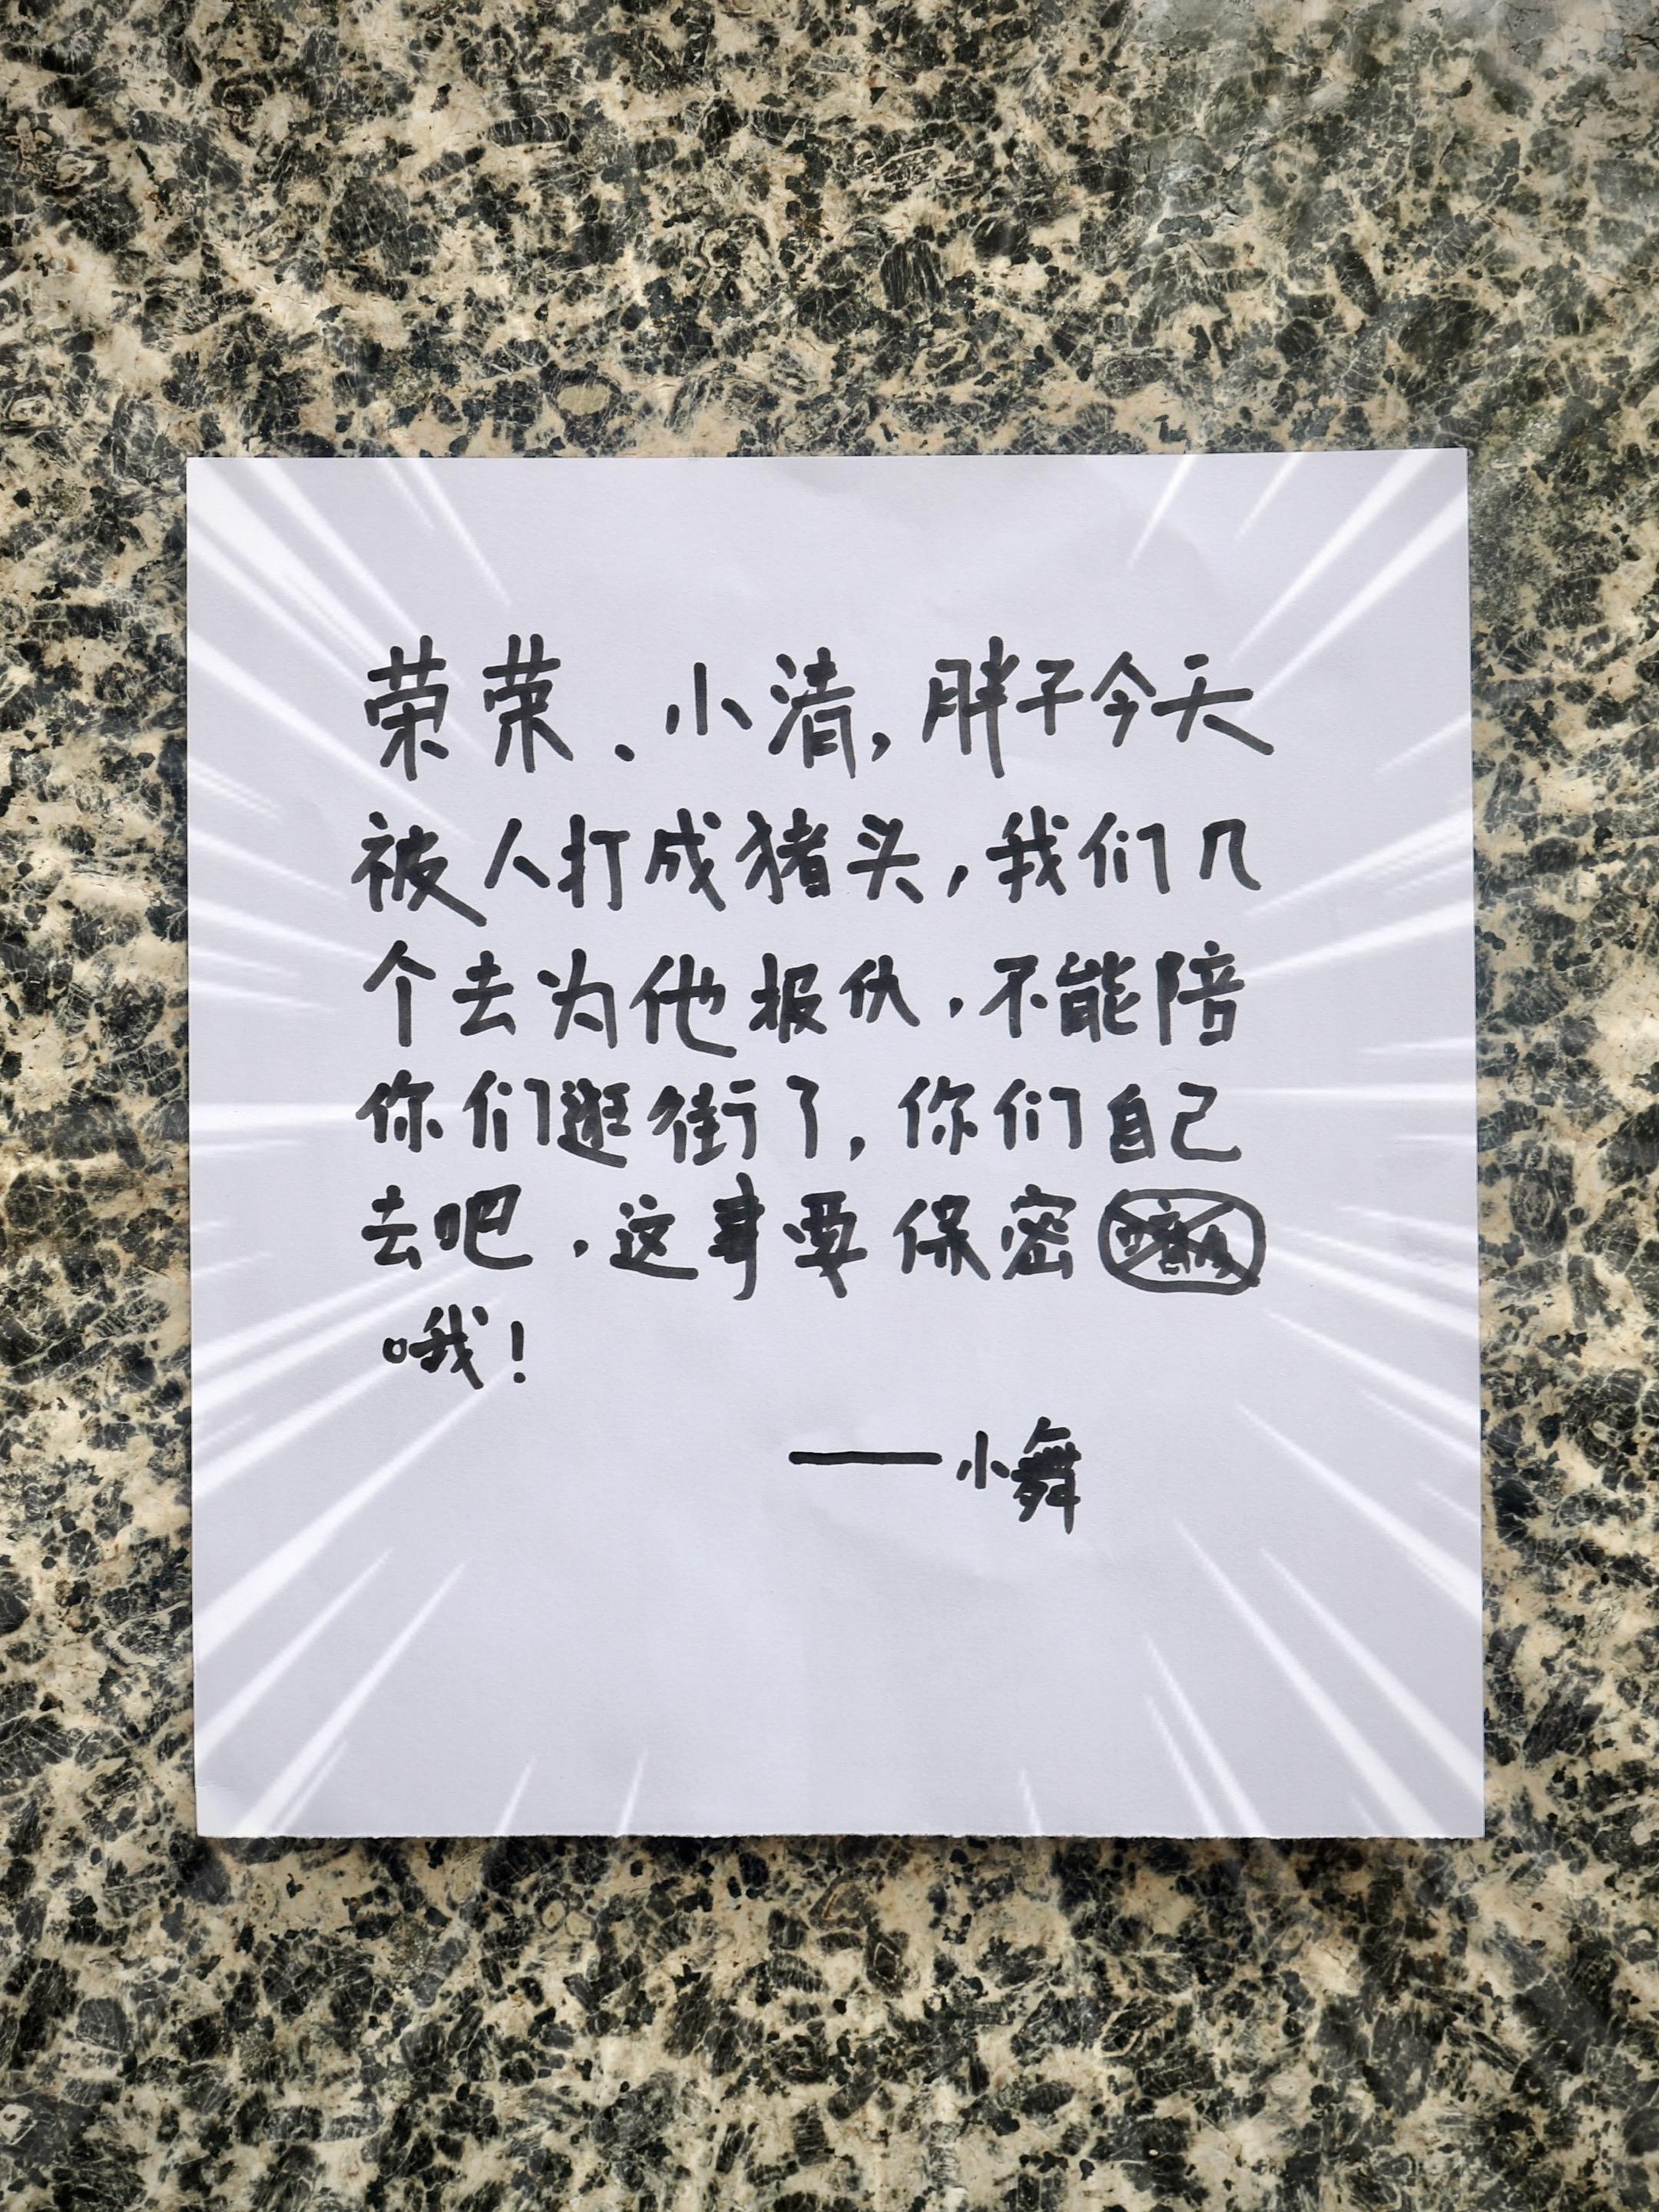 荣荣、小清，胖子今天
被人打成猪头，我们几
个去为他报仇，不能陪
你们逛街了，你们自己
去吧，这事要保密
哦！
——小舞